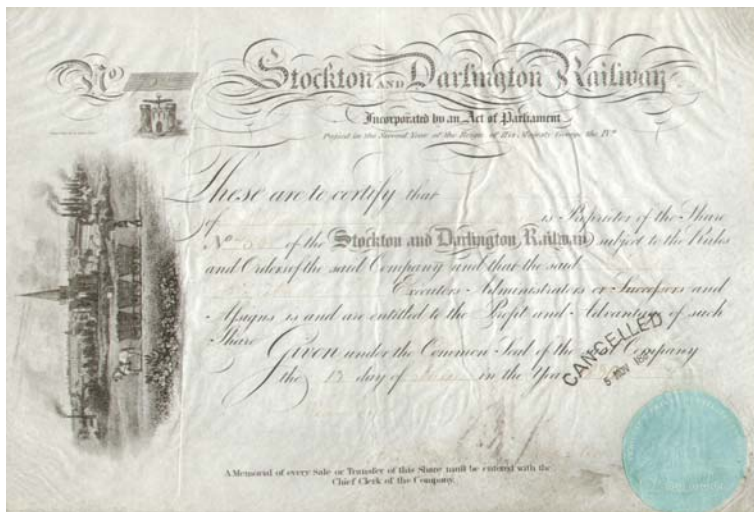 No
Stockton AND Darlington Railway
Incorporated by an Act of Parliament
Passed in the Second Year of the Reign of His Majesty George the IVth
These are to certify that
of is Proprietor of the Share
No of the Stockton and Darlington Railway subject to the Rules
and Orders of the said Company and that the said
Executors Administrators or Successors and
Assigns is and are entitled to the Profit and Advantage of such
Share
Given under the Common Seal of the said Company
the 13 day of in the Year
CANCELLED
5 NOV
A Memorial of every Sale or Transfer of this Share must be entered with the
Chief Clerk of the Company.